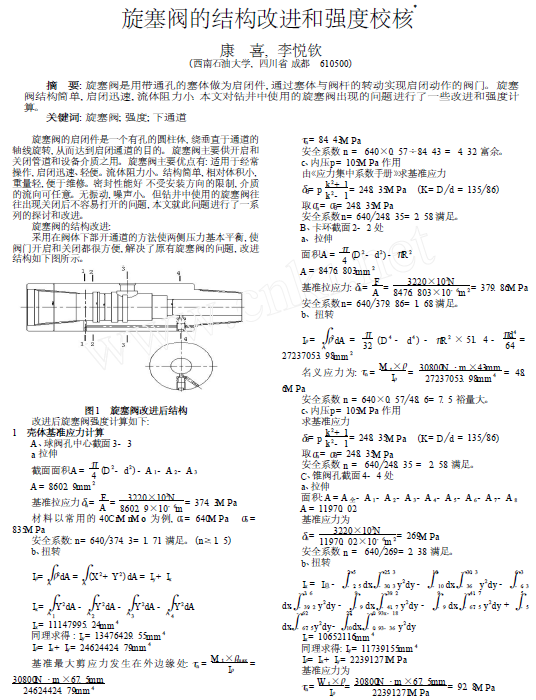 旋塞阀的结构改进和强度校核*
康 喜, 李悦钦
(西南石油大学, 四川省 成都 610500)
摘 要: 旋塞阀是用带通孔的塞体做为启闭件, 通过塞体与阀杆的转动实现启闭动作的阀门。旋塞
阀结构简单, 启闭迅速, 流体阻力小. 本文对钻井中使用的旋塞阀出现的问题进行了一些改进和强度计
算。
关键词: 旋塞阀; 强度; 下通道
旋塞阀的启闭件是一个有孔的圆柱体, 绕垂直于通道的
轴线旋转, 从而达到启闭通道的目的。旋塞阀主要供开启和
关闭管道和设备介质之用。旋塞阀主要优点有: 适用于经常
操作, 启闭迅速、轻便。流体阻力小。结构简单, 相对体积小,
重量轻, 便于维修。密封性能好. 不受安装方向的限制, 介质
的流向可任意。无振动, 噪声小。但钻井中使用的旋塞阀往
往出现关闭后不容易打开的问题, 本文就此问题进行了一系
列的探讨和改进。
旋塞阀的结构改进:
采用在阀体下部开通道的方法使两侧压力基本平衡, 使
阀门开启和关闭都很方便, 解决了原有旋塞阀的问题, 改进
结构如下图所示。
1 2 3 4
1 2 3 4
图1 旋塞阀改进后结构
改进后旋塞阀强度计算如下:
1 壳体基准应力计算
A、球阀孔中心截面 3- 3
a 拉伸
截面面积A = π/4 (D²- d²)- A₁- A₂- A₃
A = 8602. 9mm²
基准拉应力 δ= F/A = 3220×10³N / 8602. 9×10⁻⁶m² = 374. 3M Pa
材料以常用的 40CrMnMo 为例, = 640M Pa =
835M Pa
安全系数: n= 640/374. 3= 1. 71 满足。(n≥1. 5)
b、扭转
Iₚ= ∫ρ²dA = ∫(X²+ Y²) dA = Iₓ+ Iᵧ
Iₓ= ∫Y²dA - ∫Y²dA - ∫Y²dA - ∫Y²dA
Iₓ= 11147995. 24mm⁴
同理求得: Iᵧ= 13476429. 55mm⁴
Iₚ= Iₓ+ Iᵧ= 24624424. 79mm⁴
基准最大剪应力发生在外边缘处: =
30800N ·m×67. 5mm / 24624424. 79mm⁴
= 84. 43M Pa
安全系数 n = 640×0. 57÷84. 43 = 4. 32 富余。
c、内压 p= 105M Pa 作用
由《应力集中系数手册》求基准应力
= p k²+ 1 / k²- 1 = 248. 35M Pa (K= D /d = 135/86)
取 = 248. 35M Pa
安全系数 n= 640/248. 35= 2. 58 满足。
B、卡环截面 2- 2 处
a、拉伸
面积A = π/4 (D²- d²)- πR²
A = 8476. 803mm²
基准拉应力: δ= F/A = 3220×10³N / 8476. 803×10⁻⁶m² = 379. 86M Pa
安全系数 n= 640/379. 86= 1. 68 满足。
b、扭转
Iₚ= ∫ρ²dA = π/32 (D⁴- d⁴)- πR²×51. 4- πd⁴/64 =
27237053. 98mm²
名义应力为: = 30800N ·m×43mm / 27237053. 98mm⁴ = 48.
6M Pa
安全系数 n = 640×0. 57/48. 6= 7. 5 裕量大。
c、内压 p= 105M Pa 作用
求基准应力
= p k²+ 1 / k²- 1 = 248. 35M Pa (K= D /d = 135/86)
取 = 248. 35M Pa
安全系数 n = 640/248. 35 = 2. 58 满足。
C、锥阀孔截面 4- 4 处
a、拉伸
面积: A = A - A₁- A₂- A₃- A₄- A₅- A₆- A₇- A₈
A = 11970. 02
基准应力为
= 3220×10³N / 11970. 02×10⁻⁶m² = 269M Pa
安全系数 n = 640/269= 2. 38 满足。
b、扭转
Iₓ= 10652116mm⁴
同理求得: Iᵧ= 11739155mm⁴
Iₚ= Iₓ+ Iᵧ= 22391271M Pa
基准应力为
= 30800N ·m×67. 5mm / 22391271M Pa = 92. 8M Pa